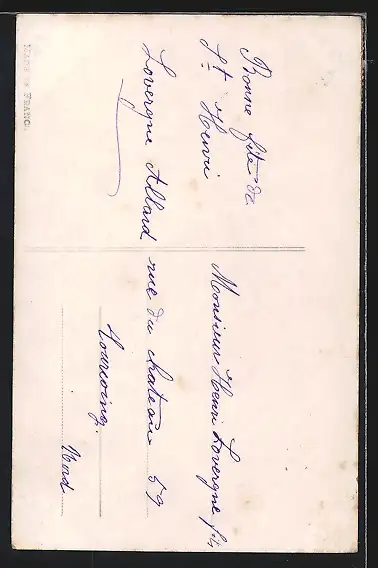 Bonne fête de
St Henri
Lovergne Allard
Monsieur Henri Lovergne fils
rue du chateau 59
Tourcoing.
Nord
MADE IN FRANCE